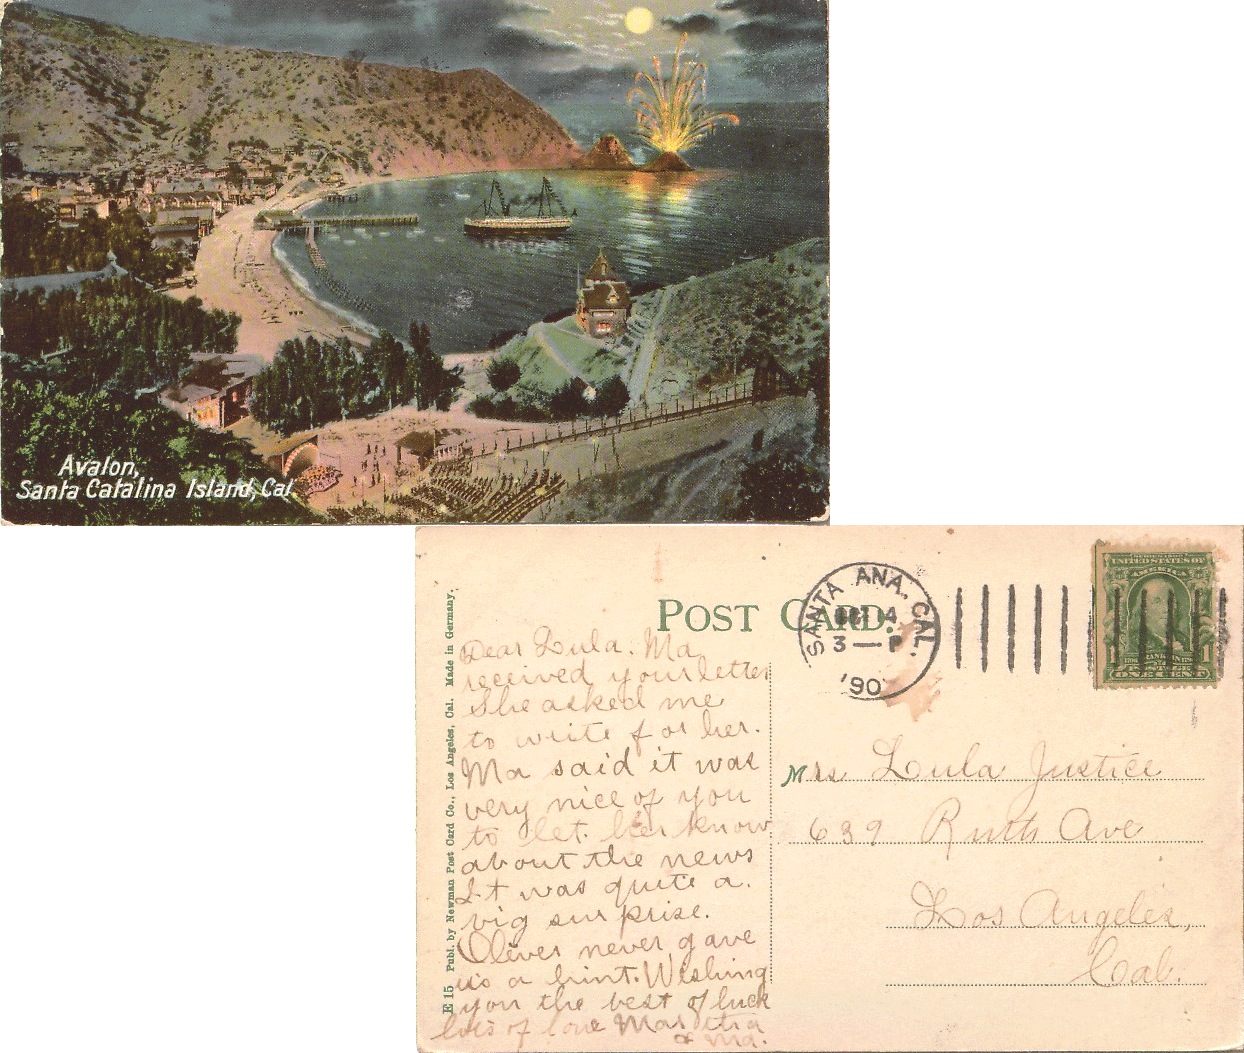 Avalon,
Santa Catalina Island, Cal
POST CARD.
SANTA ANA, CAL.
OCT 14
3 — P
'90
UNITED STATES OF
AMERICA
FRANKLIN
1 1
ONE CENT
E 15 Publ. by Newman Post Card Co., Los Angeles, Cal. Made in Germany.
Dear Lula. Ma
received your letter
She asked me
to write for her.
Ma said it was
very nice of you
to let. her know
about the news
It was quite a.
big surprise.
Oliver never gave
us a hint. Wishing
you the best of luck
lots of love Martha
& Ma.
Mrs Lula Justice
639 Ruth Ave
Los Angeles,
Cal.